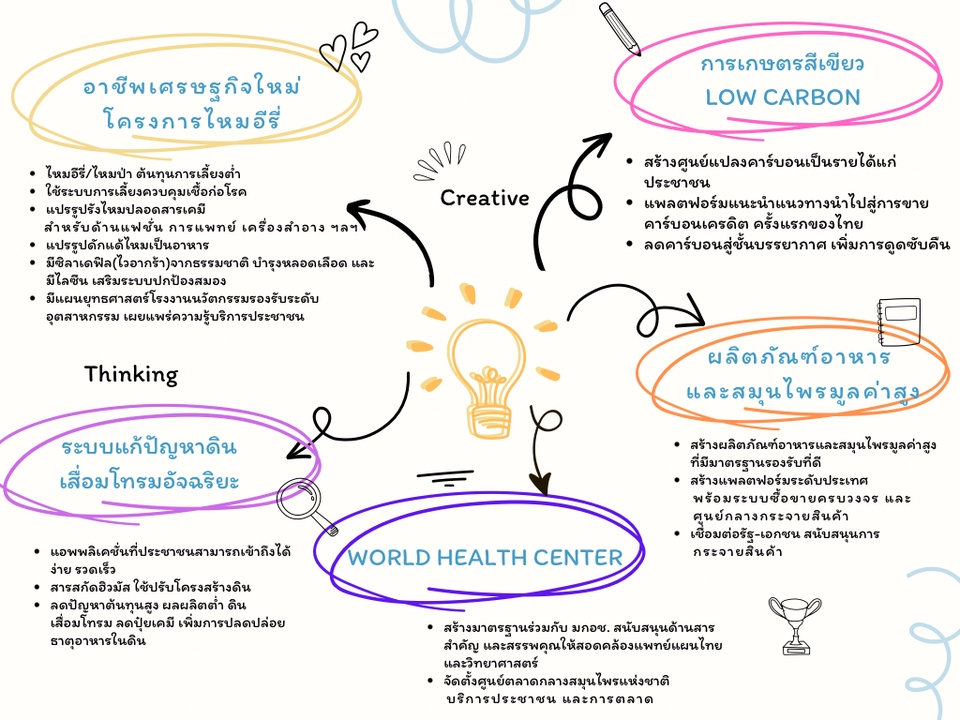 อาชีพเศรษฐกิจใหม่
โครงการไหมอีรี่
• ไหมอีรี่/ไหมป่า ต้นทุนการเลี้ยงต่ำ
• ใช้ระบบการเลี้ยงควบคุมเชื้อก่อโรค
• แปรรูปรังไหมปลอดสารเคมี
สำหรับด้านแฟชั่น การแพทย์ เครื่องสำอาง ฯลฯ
• แปรรูปดักแด้ไหมเป็นอาหาร
• มีซิลาเดฟิล(ไวอากร้า)จากธรรมชาติ บำรุงหลอดเลือด และ
มีไลซีน เสริมระบบปกป้องสมอง
• มีแผนยุทธศาสตร์โรงงานนวัตกรรมรองรับระดับ
อุตสาหกรรม เผยแพร่ความรู้บริการประชาชน
Creative
การเกษตรสีเขียว
LOW CARBON
• สร้างศูนย์แปลงคาร์บอนเป็นรายได้แก่
ประชาชน
• แพลตฟอร์มแนะนำแนวทางนำไปสู่การขาย
คาร์บอนเครดิต ครั้งแรกของไทย
• ลดคาร์บอนสู่ชั้นบรรยากาศ เพิ่มการดูดซับคืน
Thinking
ผลิตภัณฑ์อาหาร
และสมุนไพรมูลค่าสูง
• สร้างผลิตภัณฑ์อาหารและสมุนไพรมูลค่าสูง
ที่มีมาตรฐานรองรับที่ดี
• สร้างแพลตฟอร์มระดับประเทศ
พร้อมระบบซื้อขายครบวงจร และ
ศูนย์กลางกระจายสินค้า
• เชื่อมต่อรัฐ-เอกชน สนับสนุนการ
กระจายสินค้า
ระบบแก้ปัญหาดิน
เสื่อมโทรมอัจฉริยะ
• แอพพลิเคชั่นที่ประชาชนสามารถเข้าถึงได้
ง่าย รวดเร็ว
• สารสกัดฮิวมัส ใช้ปรับโครงสร้างดิน
• ลดปัญหาต้นทุนสูง ผลผลิตต่ำ ดิน
เสื่อมโทรม ลดปุ๋ยเคมี เพิ่มการปลดปล่อย
ธาตุอาหารในดิน
WORLD HEALTH CENTER
• สร้างมาตรฐานร่วมกับ มกอช. สนับสนุนด้านสาร
สำคัญ และสรรพคุณให้สอดคล้องแพทย์แผนไทย
และวิทยาศาสตร์
• จัดตั้งศูนย์ตลาดกลางสมุนไพรแห่งชาติ
บริการประชาชน และการตลาด